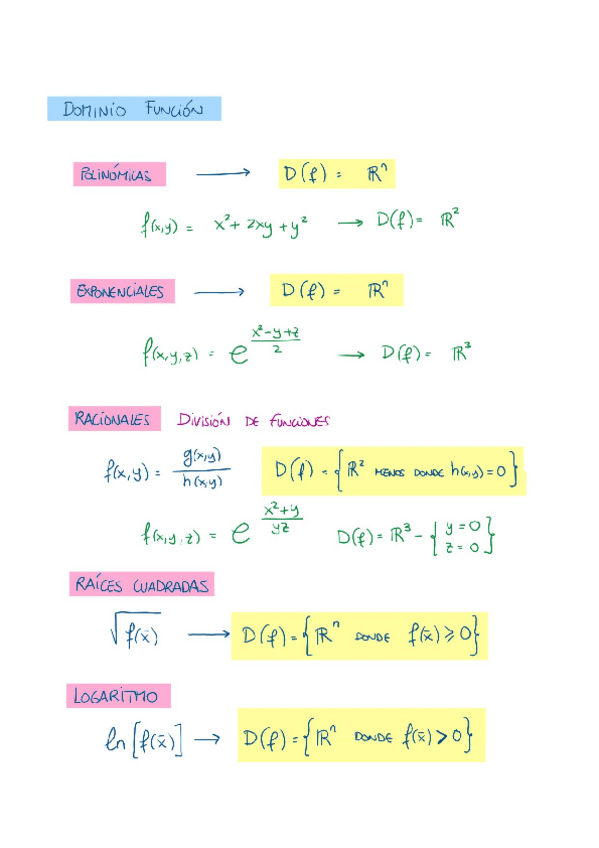 DOMINIO FUNCIÓN
POLINÓMICAS ⟶ D(f) = ℝⁿ
f(x,y) = x² + 2xy + y² ⟶ D(f) = ℝ²
EXPONENCIALES ⟶ D(f) = ℝⁿ
f(x,y,z) = e^((x²-y+z)/2) ⟶ D(f) = ℝ³
RACIONALES DIVISIÓN DE FUNCIONES
f(x,y) = g(x,y)/h(x,y) D(f) = {ℝ² MENOS DONDE h(x,y) = 0}
f(x,y,z) = e^((x²+y)/yz) D(f) = ℝ³ - {y = 0 z = 0}
RAÍCES CUADRADAS
√f(x̄) ⟶ D(f) = {ℝⁿ DONDE f(x̄) ⩾ 0}
LOGARITMO
ln[f(x̄)] ⟶ D(f) = {ℝⁿ DONDE f(x̄) > 0}